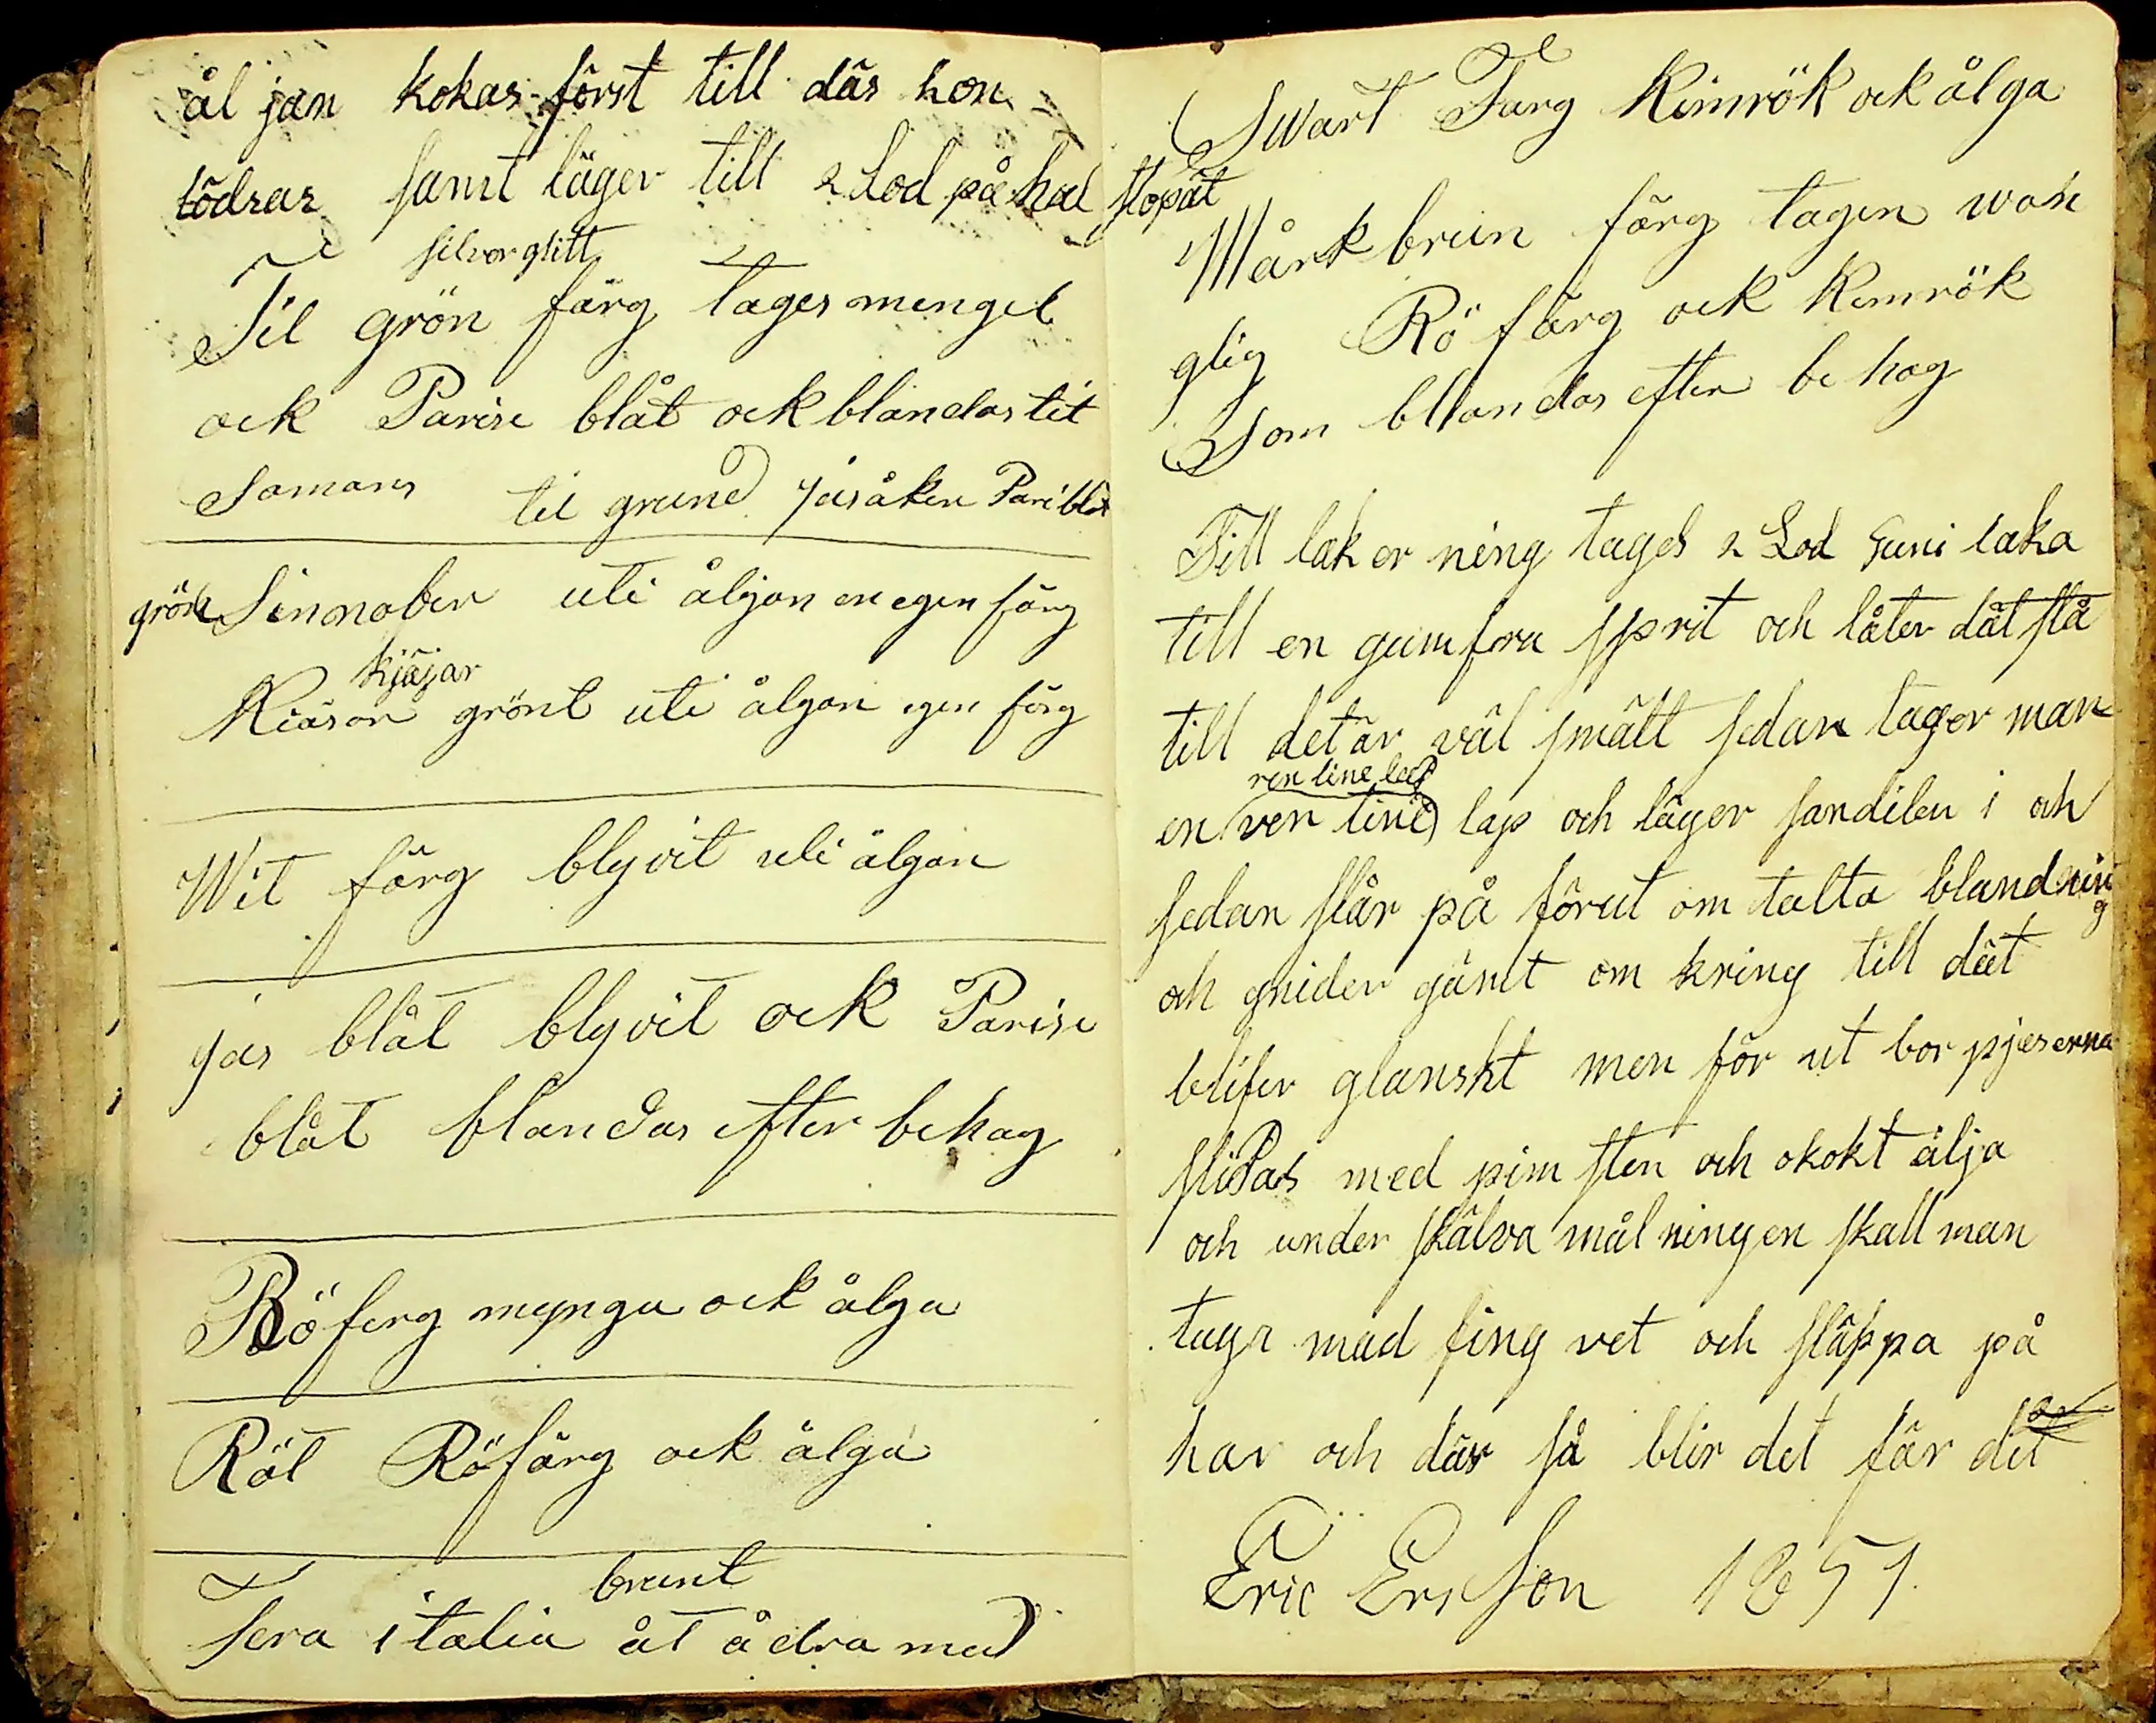 ål jan kokas först till däs hon
tödras samt läger till 2 Lod på hal stopät
silver glitt
Til grön färg tages mengel
ock Parise blåt ock blandas til
Samans til grund jäsåken Pariblåt
grön Sinnober uti åljan en egen färg
kjäjar
Kiäsar grönt uti ålgan egen färg
Wit färg blyvit uti ålgan
jäs blåt blyvit ock Parise
blåt blandas efter behag
Röferg mynga ock ålga
Röt Röfärg ock ålga
brunt
Tera italia åt ådra med
Swart Färg Kimrök ock ålga
Mårk brun färg tagen wan
glig Rö färg ock Kimrök
Som bllandas efter be hag
Till lak er ning tages 2 Lod Guni laka
till en gumfora sprit och låter dät stå
till det är väl smält sedan tager man
ren line lap
en ren line lap och läger sandilen i och
sedan slår på förut om talta blandning
och gnider gämt om kring till dät
blifer glanskt men för ut bör pjeserna
slipas med pim sten och okokt ålja
och under skälva mål ningen skall man
taga mäd fing ret och släppa på
här och där så blir det får dit
Eric Erisson 1851